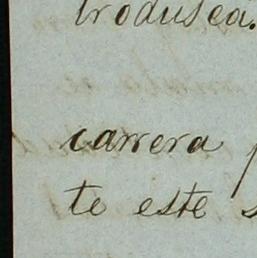 trodusca.
carrera
te este